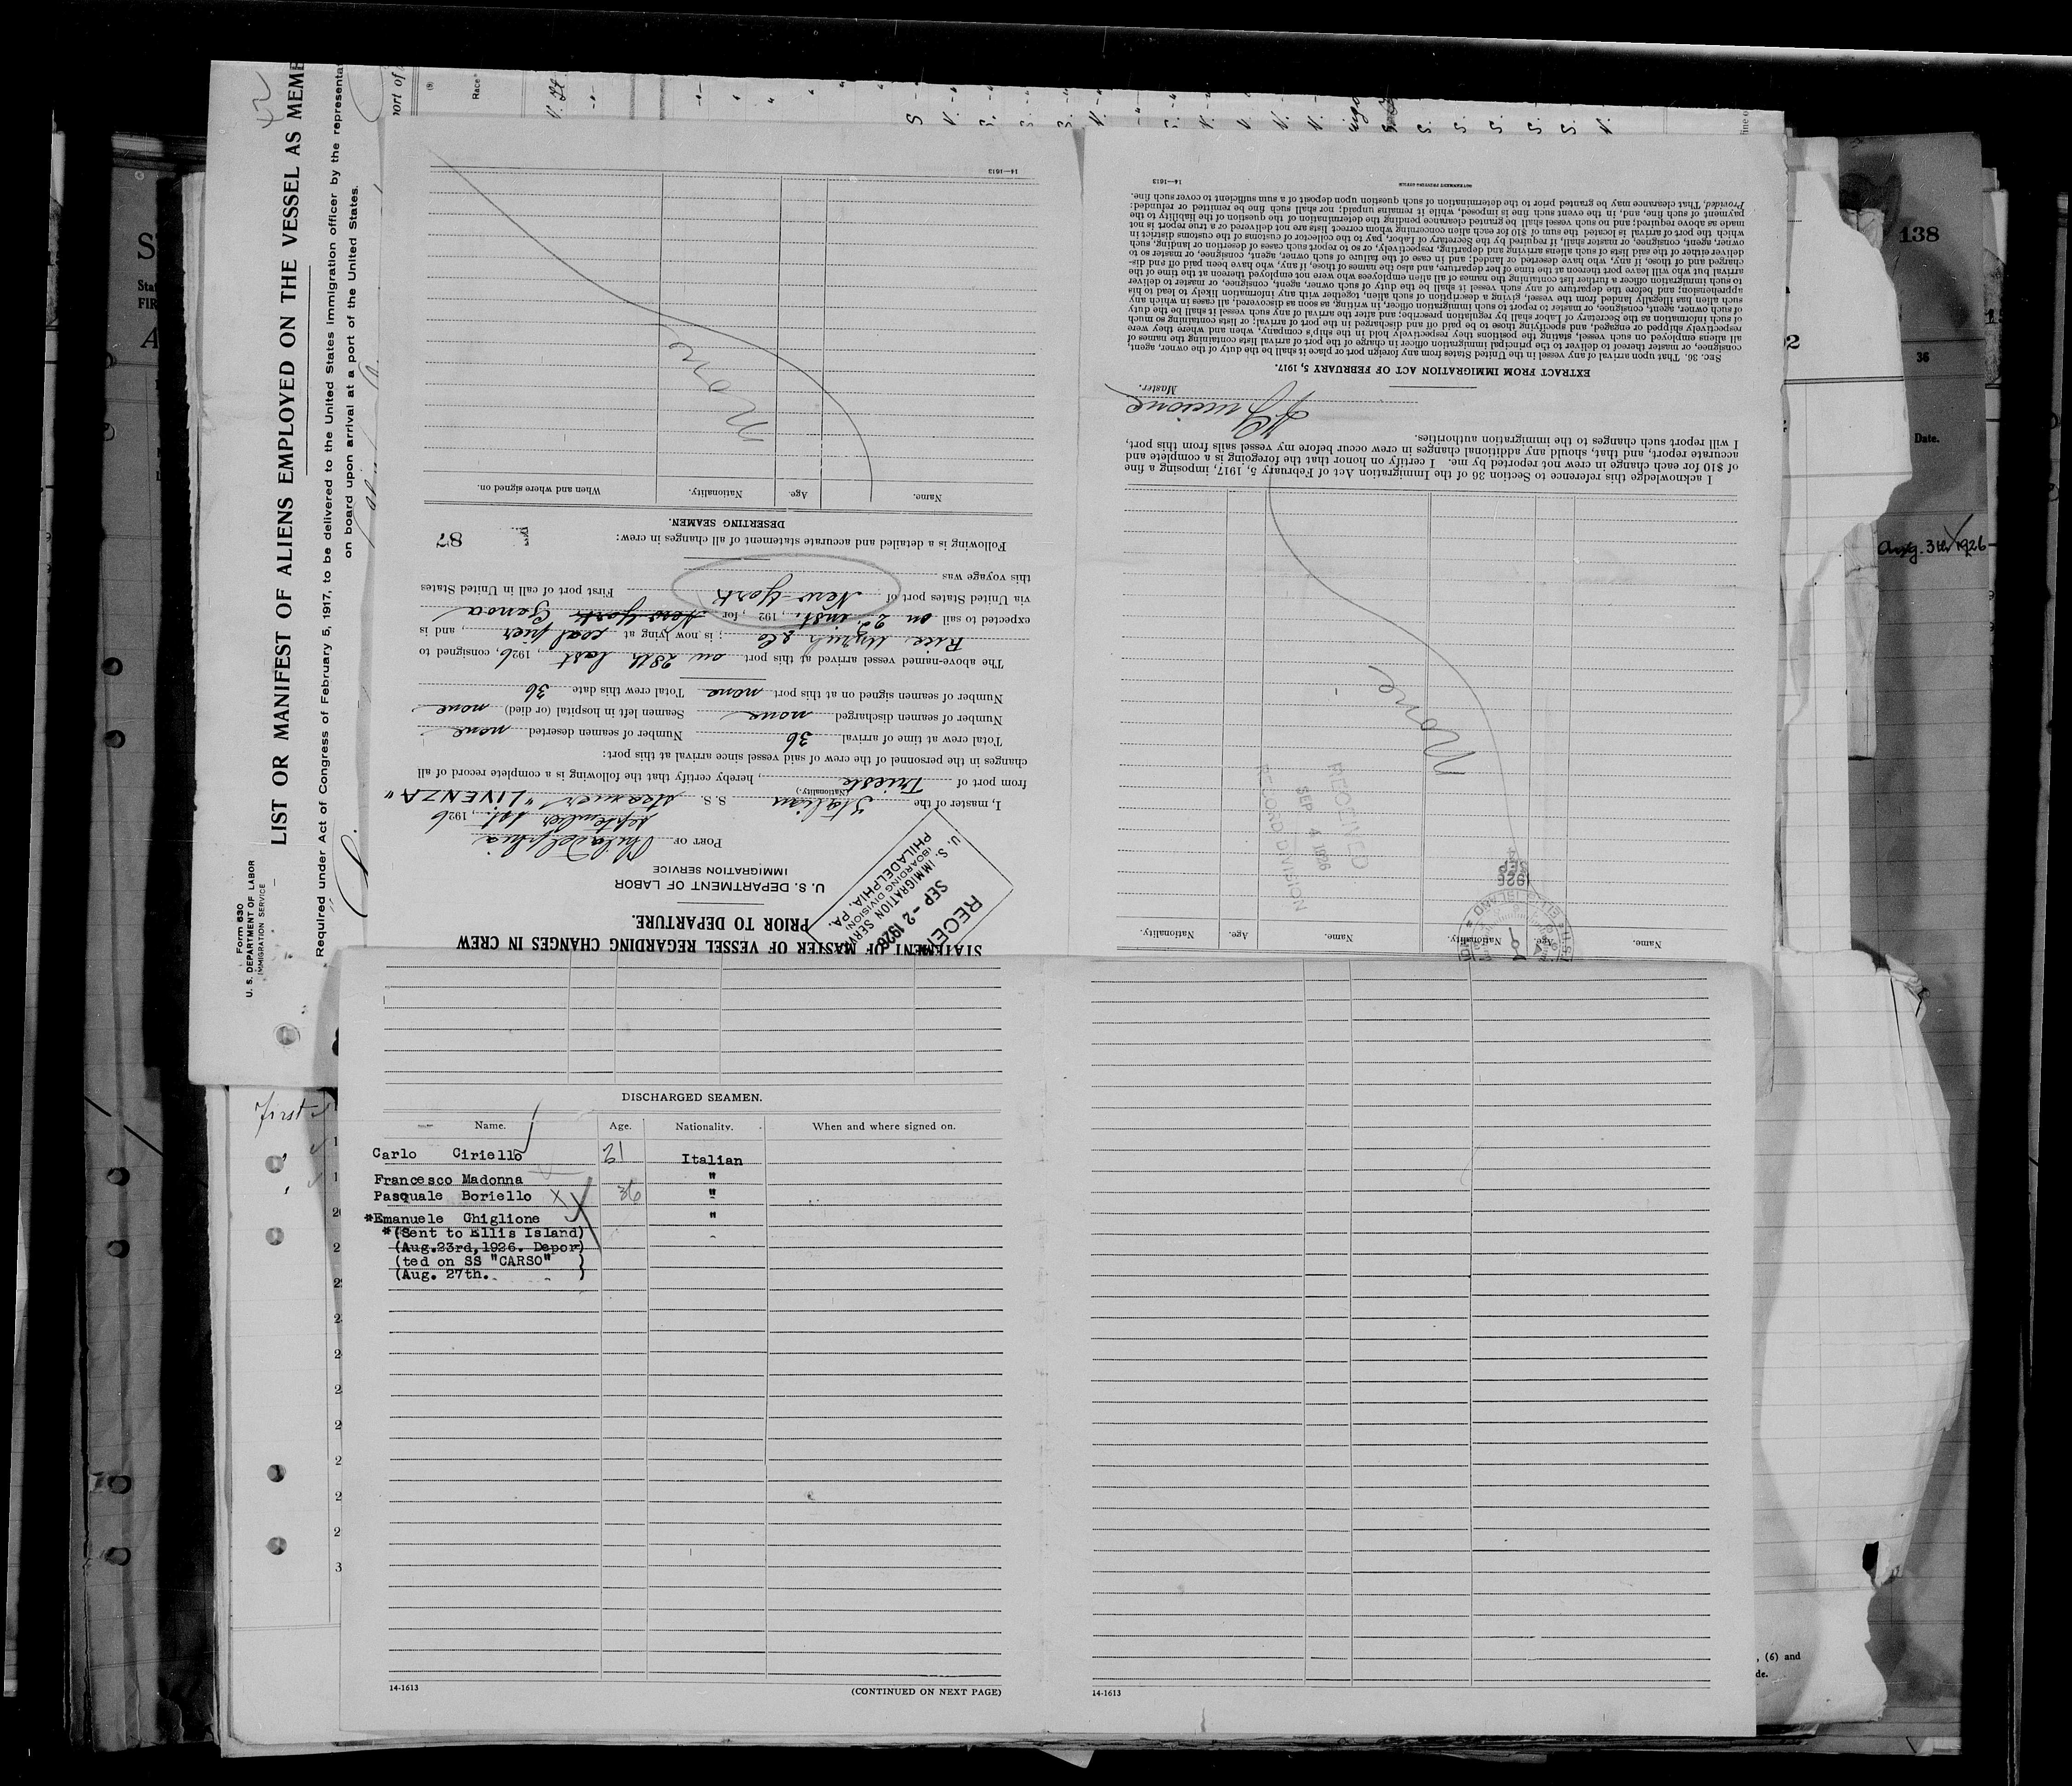 Form 630
U. S. DEPARTMENT OF LABOR
IMMIGRATION SERVICE
LIST OR MANIFEST OF ALIENS EMPLOYED ON THE VESSEL AS MEMB
Required under Act of Congress of February 5, 1917, to be delivered to the United States immigration officer by the representa
on board upon arrival at a port of the United States.
Race
STATEMENT OF MASTER OF VESSEL REGARDING CHANGES IN CREW
PRIOR TO DEPARTURE.
U. S. DEPARTMENT OF LABOR
IMMIGRATION SERVICE
U. S. IMMIGRATION SERV
BOARDING DIVISION
PHILADELPHIA, PA.
SEP - 2 1926
PORT OF Philadelphia
September 1st, 1926
I, master of the Italian S. S. steamer "LIVENZA"
(Nationality)
from port of Trieste, hereby certify that the following is a complete record of all
changes in the personnel of the crew of said vessel since arrival at this port:
Total crew at time of arrival 36 Number of seamen deserted none
Number of seamen discharged none Seamen left in hospital (or died) none
Number of seamen signed on at this port none Total crew this date 36
The above-named vessel arrived at this port on 28th last, 1926, consigned to
; is now lying at coal pier, and is
expected to sail on 2d inst., 192 , for New York Genoa
via United States port of New-York First port of call in United States
this voyage was
Following is a detailed and accurate statement of all changes in crew:
87
DESERTING SEAMEN.
Name. Age. Nationality. When and where signed on.
None
14—1613
Name. Age. Nationality. Name. Age. Nationality.
1926
SEP
4
RECEIVED
SEP 4 1926
RECORD DIVISION
None
I acknowledge this reference to Section 36 of the Immigration Act of February 5, 1917, imposing a fine
of $10 for each change in crew not reported by me. I certify on honor that the foregoing is a complete and
accurate report, and that, should any additional changes in crew occur before my vessel sails from this port,
I will report such changes to the immigration authorities.
Master.
EXTRACT FROM IMMIGRATION ACT OF FEBRUARY 5, 1917.
SEC. 36. That upon arrival of any vessel in the United States from any foreign port or place it shall be the duty of the owner, agent,
consignee, or master thereof to deliver to the principal immigration officer in charge of the port of arrival lists containing the names of
all aliens employed on such vessel, stating the positions they respectively hold in the ship's company, when and where they were
respectively shipped or engaged, and specifying those to be paid off and discharged in the port of arrival; or lists containing so much
of such information as the Secretary of Labor shall by regulation prescribe; and after the arrival of any such vessel it shall be the duty
of such owner, agent, consignee, or master to report to such immigration officer, in writing, as soon as discovered, all cases in which any
such alien has illegally landed from the vessel, giving a description of such alien, together with any information likely to lead to his
apprehension; and before the departure of any such vessel it shall be the duty of such owner, agent, consignee, or master to deliver
to such immigration officer a further list containing the names of all alien employees who were not employed thereon at the time of the
arrival but who will leave port thereon at the time of her departure, and also the names of those, if any, who have been paid off and dis-
charged and of those, if any, who have deserted or landed; and in case of the failure of such owner, agent, consignee, or master so to
deliver either of the said lists of such aliens arriving and departing, respectively, or so to report such cases of desertion or landing, such
owner, agent, consignee, or master shall, if required by the Secretary of Labor, pay to the collector of customs of the customs district in
which the port of arrival is located the sum of $10 for each alien concerning whom correct lists are not delivered or a true report is not
made as above required; and no such vessel shall be granted clearance pending the determination of the question of the liability to the
payment of such fine, and, in the event such fine is imposed, while it remains unpaid; nor shall such fine be remitted or refunded:
Provided, That clearance may be granted prior to the determination of such question upon deposit of a sum sufficient to cover such fine.
14—1613 GOVERNMENT PRINTING OFFICE
DISCHARGED SEAMEN.
Name. Age. Nationality. When and where signed on.
Carlo Ciriello 21 Italian
Francesco Madonna "
Pasquale Boriello X 36 "
*Emanuele Ghiglione "
*(Sent to Ellis Island)
(Aug.23rd,1926. Depor)
(ted on SS "CARSO" )
(Aug. 27th. )
14-1613
(CONTINUED ON NEXT PAGE)
14-1613
first
138
36
Date.
Aug. 3th 1926
, (6) and
de.